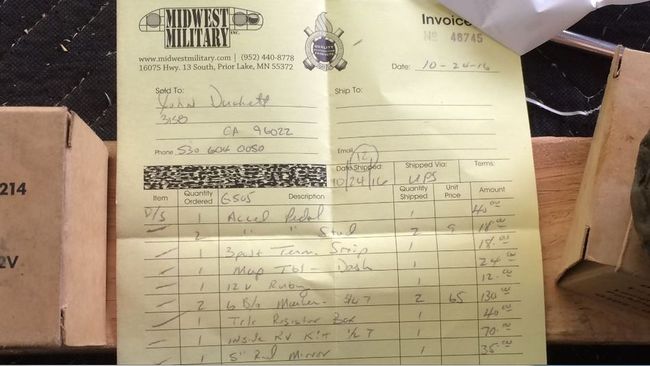 MIDWEST MILITARY INC.
Invoice
№ 48745
www.midwestmilitary.com | (952) 440-8778
16075 Hwy. 13 South, Prior Lake, MN 55372
Date: 10-24-16
Sold To: Ship To:
John Duckett
3150
CA 96022
Phone 530 604 0050 Email
12
Date Shipped Shipped Via: Terms:
10/24/16 UPS
Item Quantity Ordered G505 Description Quantity Shipped Unit Price Amount
1 Accel Pedal 1 40.00
2 " " Stud 2 9 18.00
1 3 post Term Strip 1 18.00
1 Map Tbl - Dash 1 24.00
1 12V Ruby 1 12.00
2 6 B/o Marker 3/4 T 2 65 130.00
1 Resistor Box 1 40.00
1 inside RV Kit 1/2 T 1 70.00
1 5" Rnd Mirror 1 35.00
214
2V